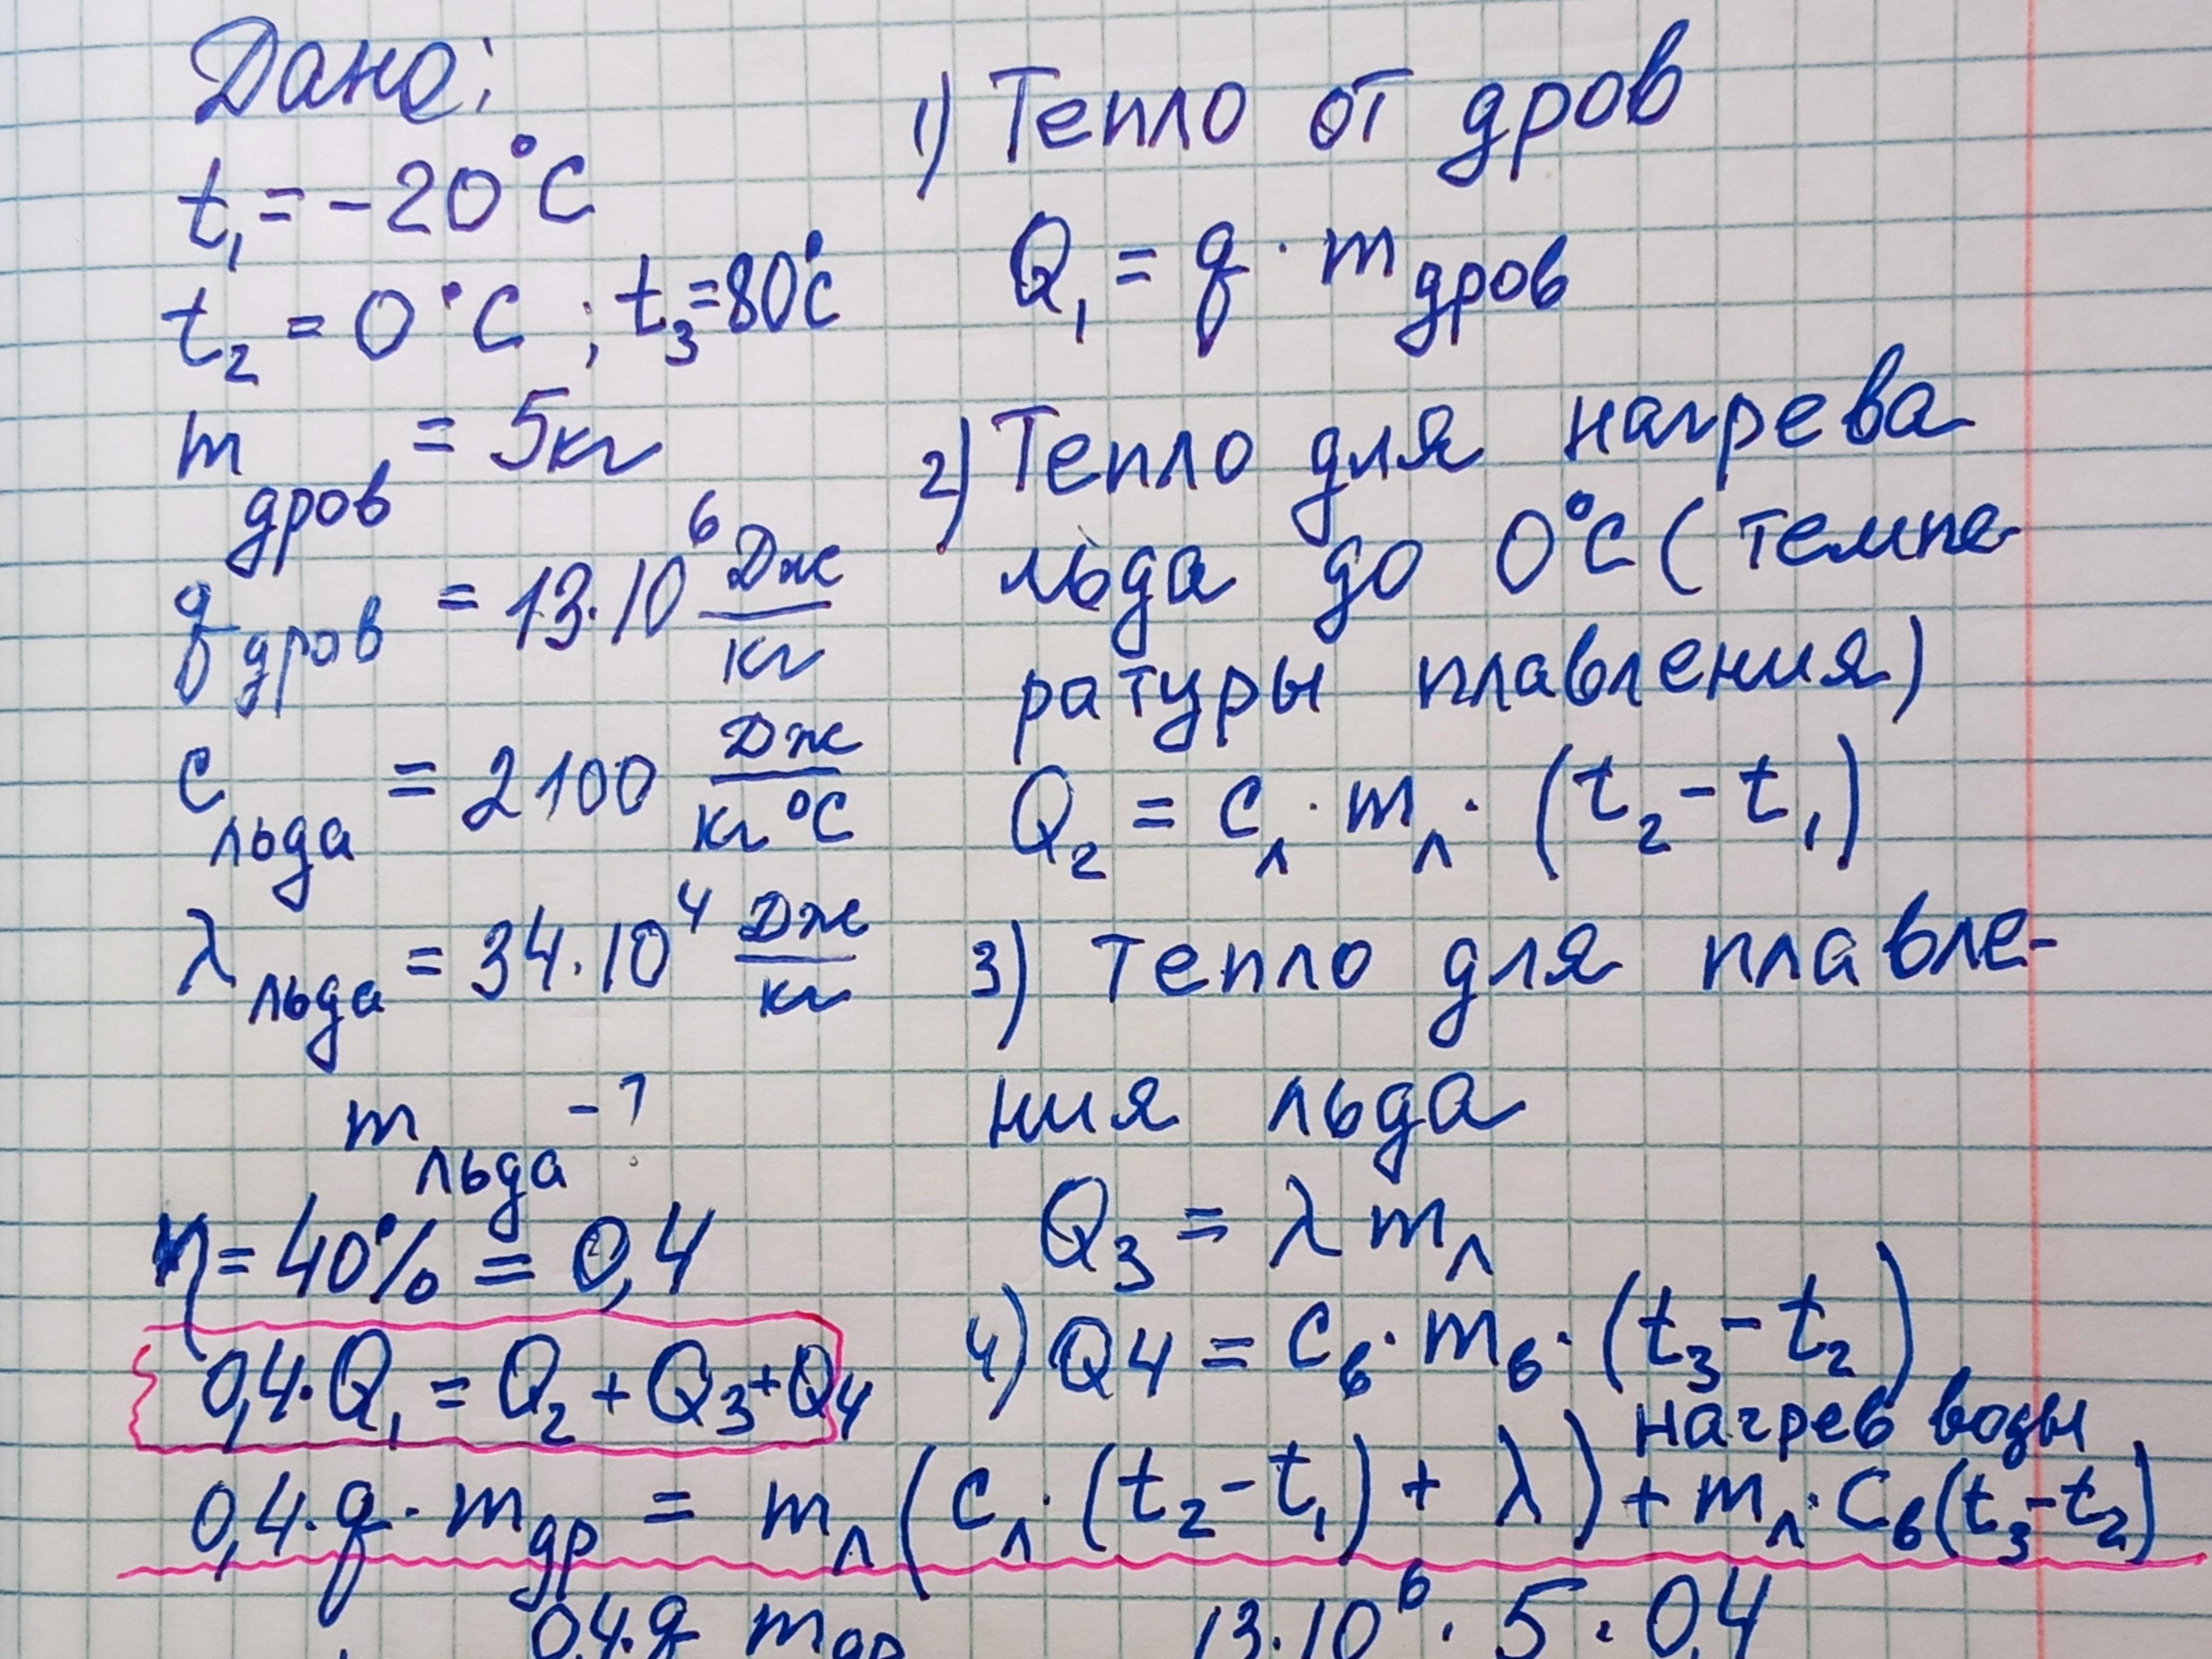 Дано:
t₁ = -20°C
t₂ = 0°C ; t₃=80°C
m дров = 5кг
q дров = 13·10⁶ Дж/кг
c льда = 2100 Дж/кг°C
λ льда = 34·10⁴ Дж/кг
m льда -?
η = 40% = 0,4
0,4·Q₁ = Q₂ + Q₃ + Q₄
1) Тепло от дров
Q₁ = q · m дров
2) Тепло для нагрева
льда до 0°C (темпе-
ратуры плавления)
Q₂ = cл · mл · (t₂ - t₁)
3) Тепло для плавле-
ния льда
Q₃ = λ mл
4) Q4 = cв · mв · (t₃ - t₂)
нагрев воды
0,4·q·mдр = mл (cл·(t₂ - t₁) + λ) + mл·cв(t₃-t₂)
0,4·q mдр 13·10⁶ · 5 · 0,4